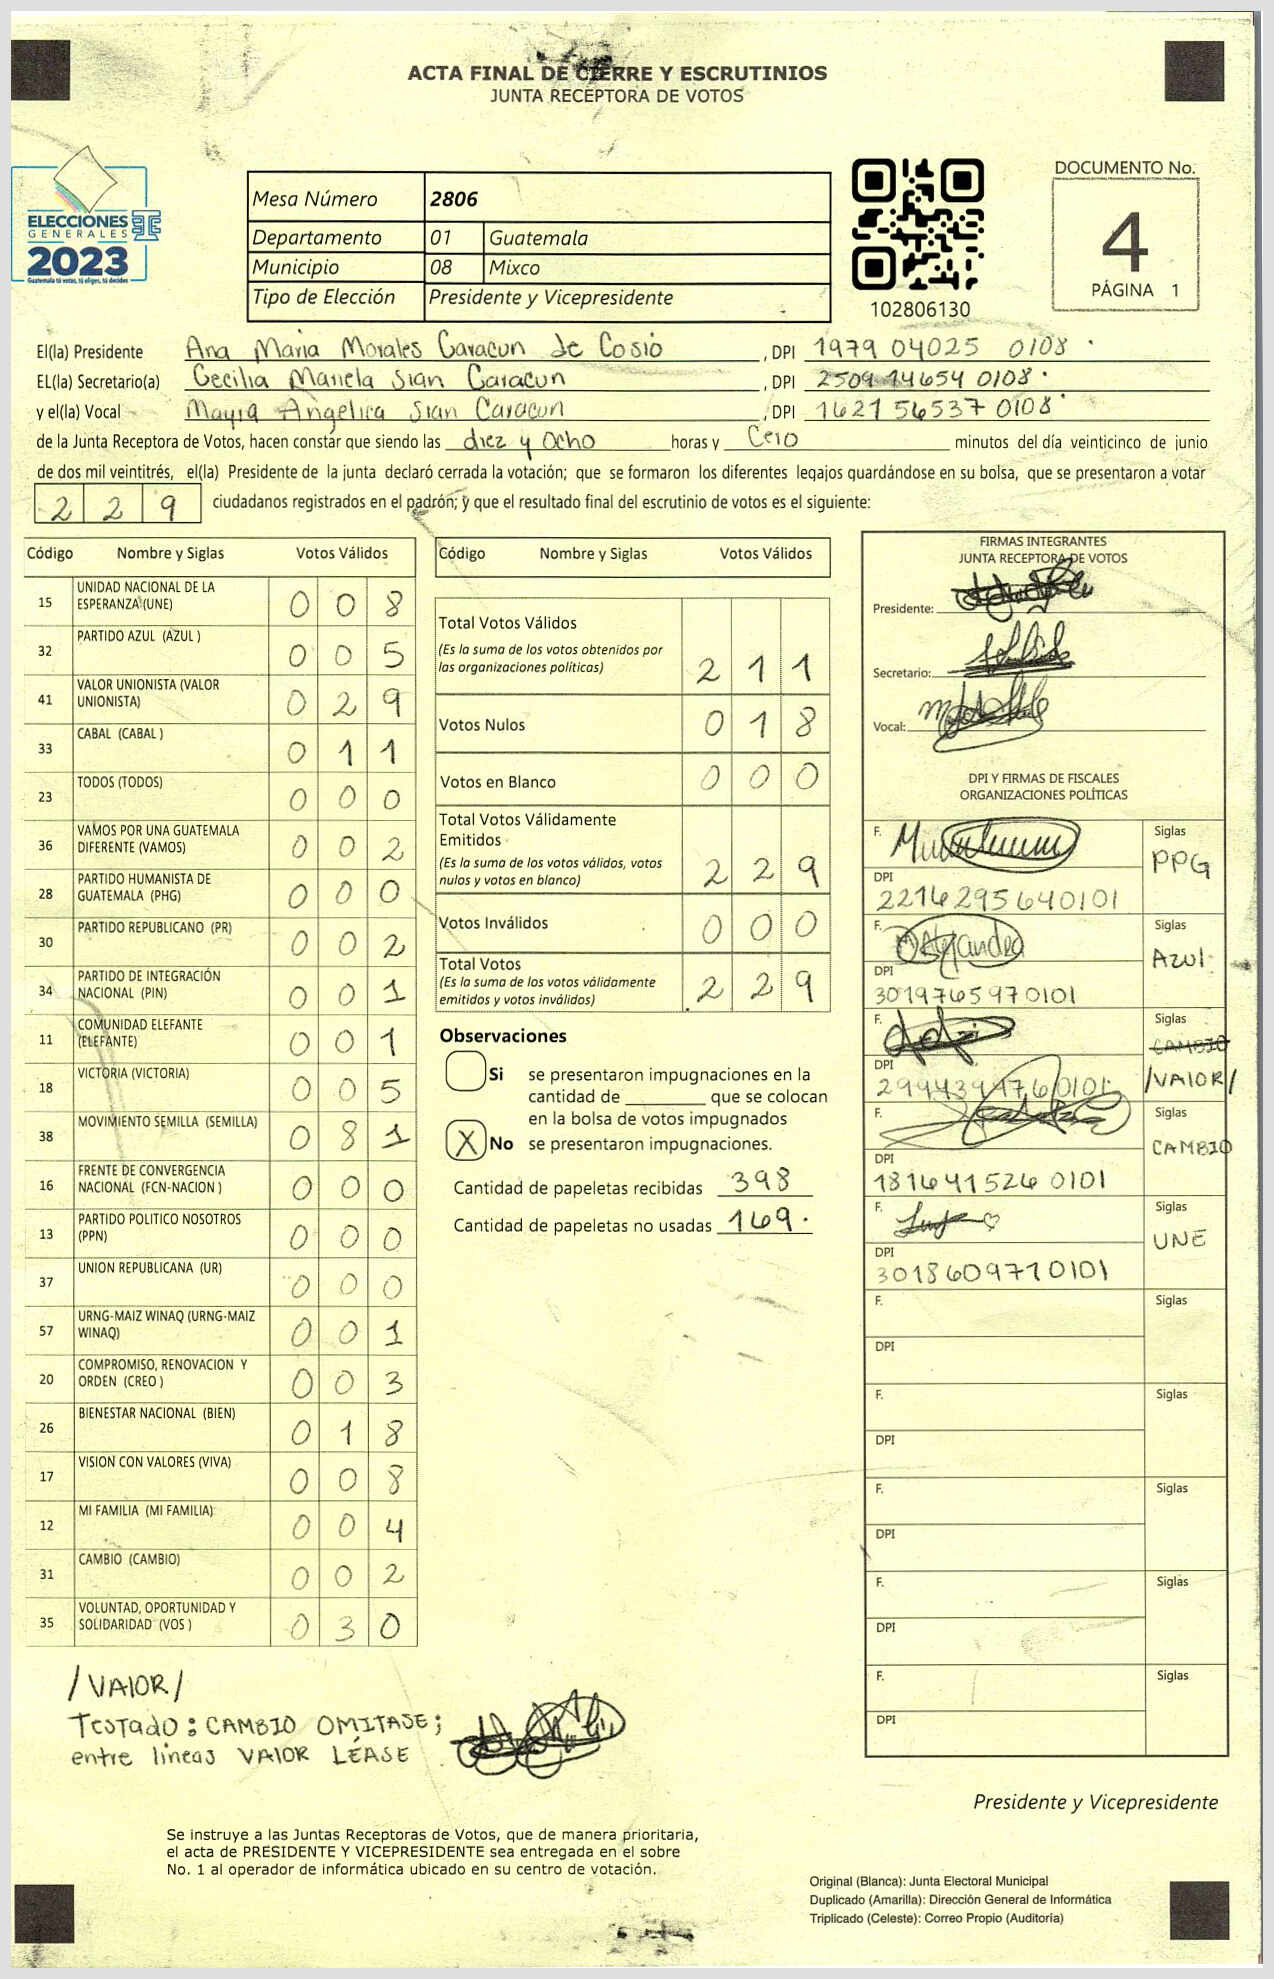 ACTA FINAL DE CIERRE Y ESCRUTINIOS
JUNTA RECEPTORA DE VOTOS
ELECCIONES
GENERALES
2023
Guatemala tú votas, tú eliges, tú decides
Mesa Número 2806
Departamento 01 Guatemala
Municipio 08 Mixco
Tipo de Elección Presidente y Vicepresidente
102806130
DOCUMENTO No.
4
PÁGINA 1
El(la) Presidente Ana Maria Morales Caracun de Cosio , DPI 1979 04025 0108
EL(la) Secretario(a) Cecilia Mariela Sian Caracun , DPI 2509 14654 0108
y el(la) Vocal Mayra Angelica Sian Caracun , DPI 1621 56537 0108
de la Junta Receptora de Votos, hacen constar que siendo las diez y ocho horas y Cero minutos del día veinticinco de junio
de dos mil veintitrés, el(la) Presidente de la junta declaró cerrada la votación; que se formaron los diferentes legajos guardándose en su bolsa, que se presentaron a votar
229 ciudadanos registrados en el padrón; y que el resultado final del escrutinio de votos es el siguiente:
Código Nombre y Siglas Votos Válidos
15 UNIDAD NACIONAL DE LA ESPERANZA (UNE) 008
32 PARTIDO AZUL (AZUL ) 005
41 VALOR UNIONISTA (VALOR UNIONISTA) 029
33 CABAL (CABAL ) 011
23 TODOS (TODOS) 000
36 VAMOS POR UNA GUATEMALA DIFERENTE (VAMOS) 002
28 PARTIDO HUMANISTA DE GUATEMALA (PHG) 000
30 PARTIDO REPUBLICANO (PR) 002
34 PARTIDO DE INTEGRACIÓN NACIONAL (PIN) 001
11 COMUNIDAD ELEFANTE (ELEFANTE) 001
18 VICTORIA (VICTORIA) 005
38 MOVIMIENTO SEMILLA (SEMILLA) 081
16 FRENTE DE CONVERGENCIA NACIONAL (FCN-NACION ) 000
13 PARTIDO POLITICO NOSOTROS (PPN) 000
37 UNION REPUBLICANA (UR) 000
57 URNG-MAIZ WINAQ (URNG-MAIZ WINAQ) 001
20 COMPROMISO, RENOVACION Y ORDEN (CREO ) 003
26 BIENESTAR NACIONAL (BIEN) 018
17 VISION CON VALORES (VIVA) 008
12 MI FAMILIA (MI FAMILIA) 004
31 CAMBIO (CAMBIO) 002
35 VOLUNTAD, OPORTUNIDAD Y SOLIDARIDAD (VOS ) 030
Código Nombre y Siglas Votos Válidos
Total Votos Válidos
(Es la suma de los votos obtenidos por
las organizaciones políticas) 211
Votos Nulos 018
Votos en Blanco 000
Total Votos Válidamente
Emitidos
(Es la suma de los votos válidos, votos
nulos y votos en blanco) 229
Votos Inválidos 000
Total Votos
(Es la suma de los votos válidamente
emitidos y votos inválidos) 229
Observaciones
Si se presentaron impugnaciones en la
cantidad de ________ que se colocan
en la bolsa de votos impugnados
X No se presentaron impugnaciones.
Cantidad de papeletas recibidas 398
Cantidad de papeletas no usadas 169.
FIRMAS INTEGRANTES
JUNTA RECEPTORA DE VOTOS
Presidente:
Secretario:
Vocal:
DPI Y FIRMAS DE FISCALES
ORGANIZACIONES POLÍTICAS
F. Siglas
PPG
DPI
2214295640101
F. Alejandra Siglas
Azul
DPI
3019765970101
F. Siglas
CAMBIO
/VAlOR/
DPI
2994394760101
F. Siglas
CAMBIO
DPI
181641526 0101
F. Siglas
UNE
DPI
3018609710101
F. Siglas
DPI
F. Siglas
DPI
F. Siglas
DPI
F. Siglas
DPI
F. Siglas
DPI
/VAlOR/
Testado: CAMBIO OMITASE;
entre líneas VAlOR LÉASE
Presidente y Vicepresidente
Se instruye a las Juntas Receptoras de Votos, que de manera prioritaria,
el acta de PRESIDENTE Y VICEPRESIDENTE sea entregada en el sobre
No. 1 al operador de informática ubicado en su centro de votación.
Original (Blanca): Junta Electoral Municipal
Duplicado (Amarilla): Dirección General de Informática
Triplicado (Celeste): Correo Propio (Auditoría)